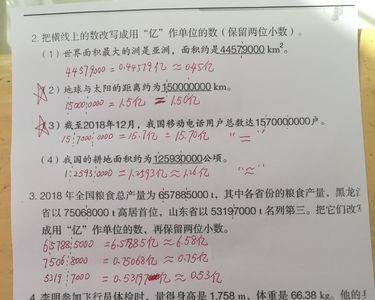 2. 把横线上的数改写成用“亿”作单位的数（保留两位小数）。
（1）世界面积最大的洲是亚洲，面积约是44579000 km²。
44579000 = 0.44579亿 ≈ 0.45亿
（2）地球与太阳的距离约为150000000 km。
150000000 = 1.5亿 = 1.50亿
（3）截至2018年12月，我国移动电话用户总数达1570000000户。
1570000000 = 15.7亿 = 15.70亿 “=”
（4）我国的耕地面积约为125930000公顷。
125930000 = 1.2593亿 ≈ 1.26亿 “≈”
3. 2018年全国粮食总产量为657885000 t，其中各省份的粮食产量，黑龙江
省以75068000 t高居首位，山东省以53197000 t名列第三。把它们改写
成用“亿”作单位的数，再保留两位小数。
657885000 = 6.57885亿 ≈ 6.58亿
75068000 = 0.75068亿 ≈ 0.75亿
53197000 = 0.53197亿 ≈ 0.53亿
4. 李明参加飞行员体检时，量得身高是1.758 m，体重是66.38 kg。他的